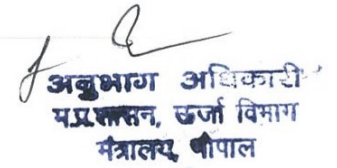 अनुभाग अधिकारी
म.प्र.शासन, ऊर्जा विभाग
मंत्रालय, भोपाल